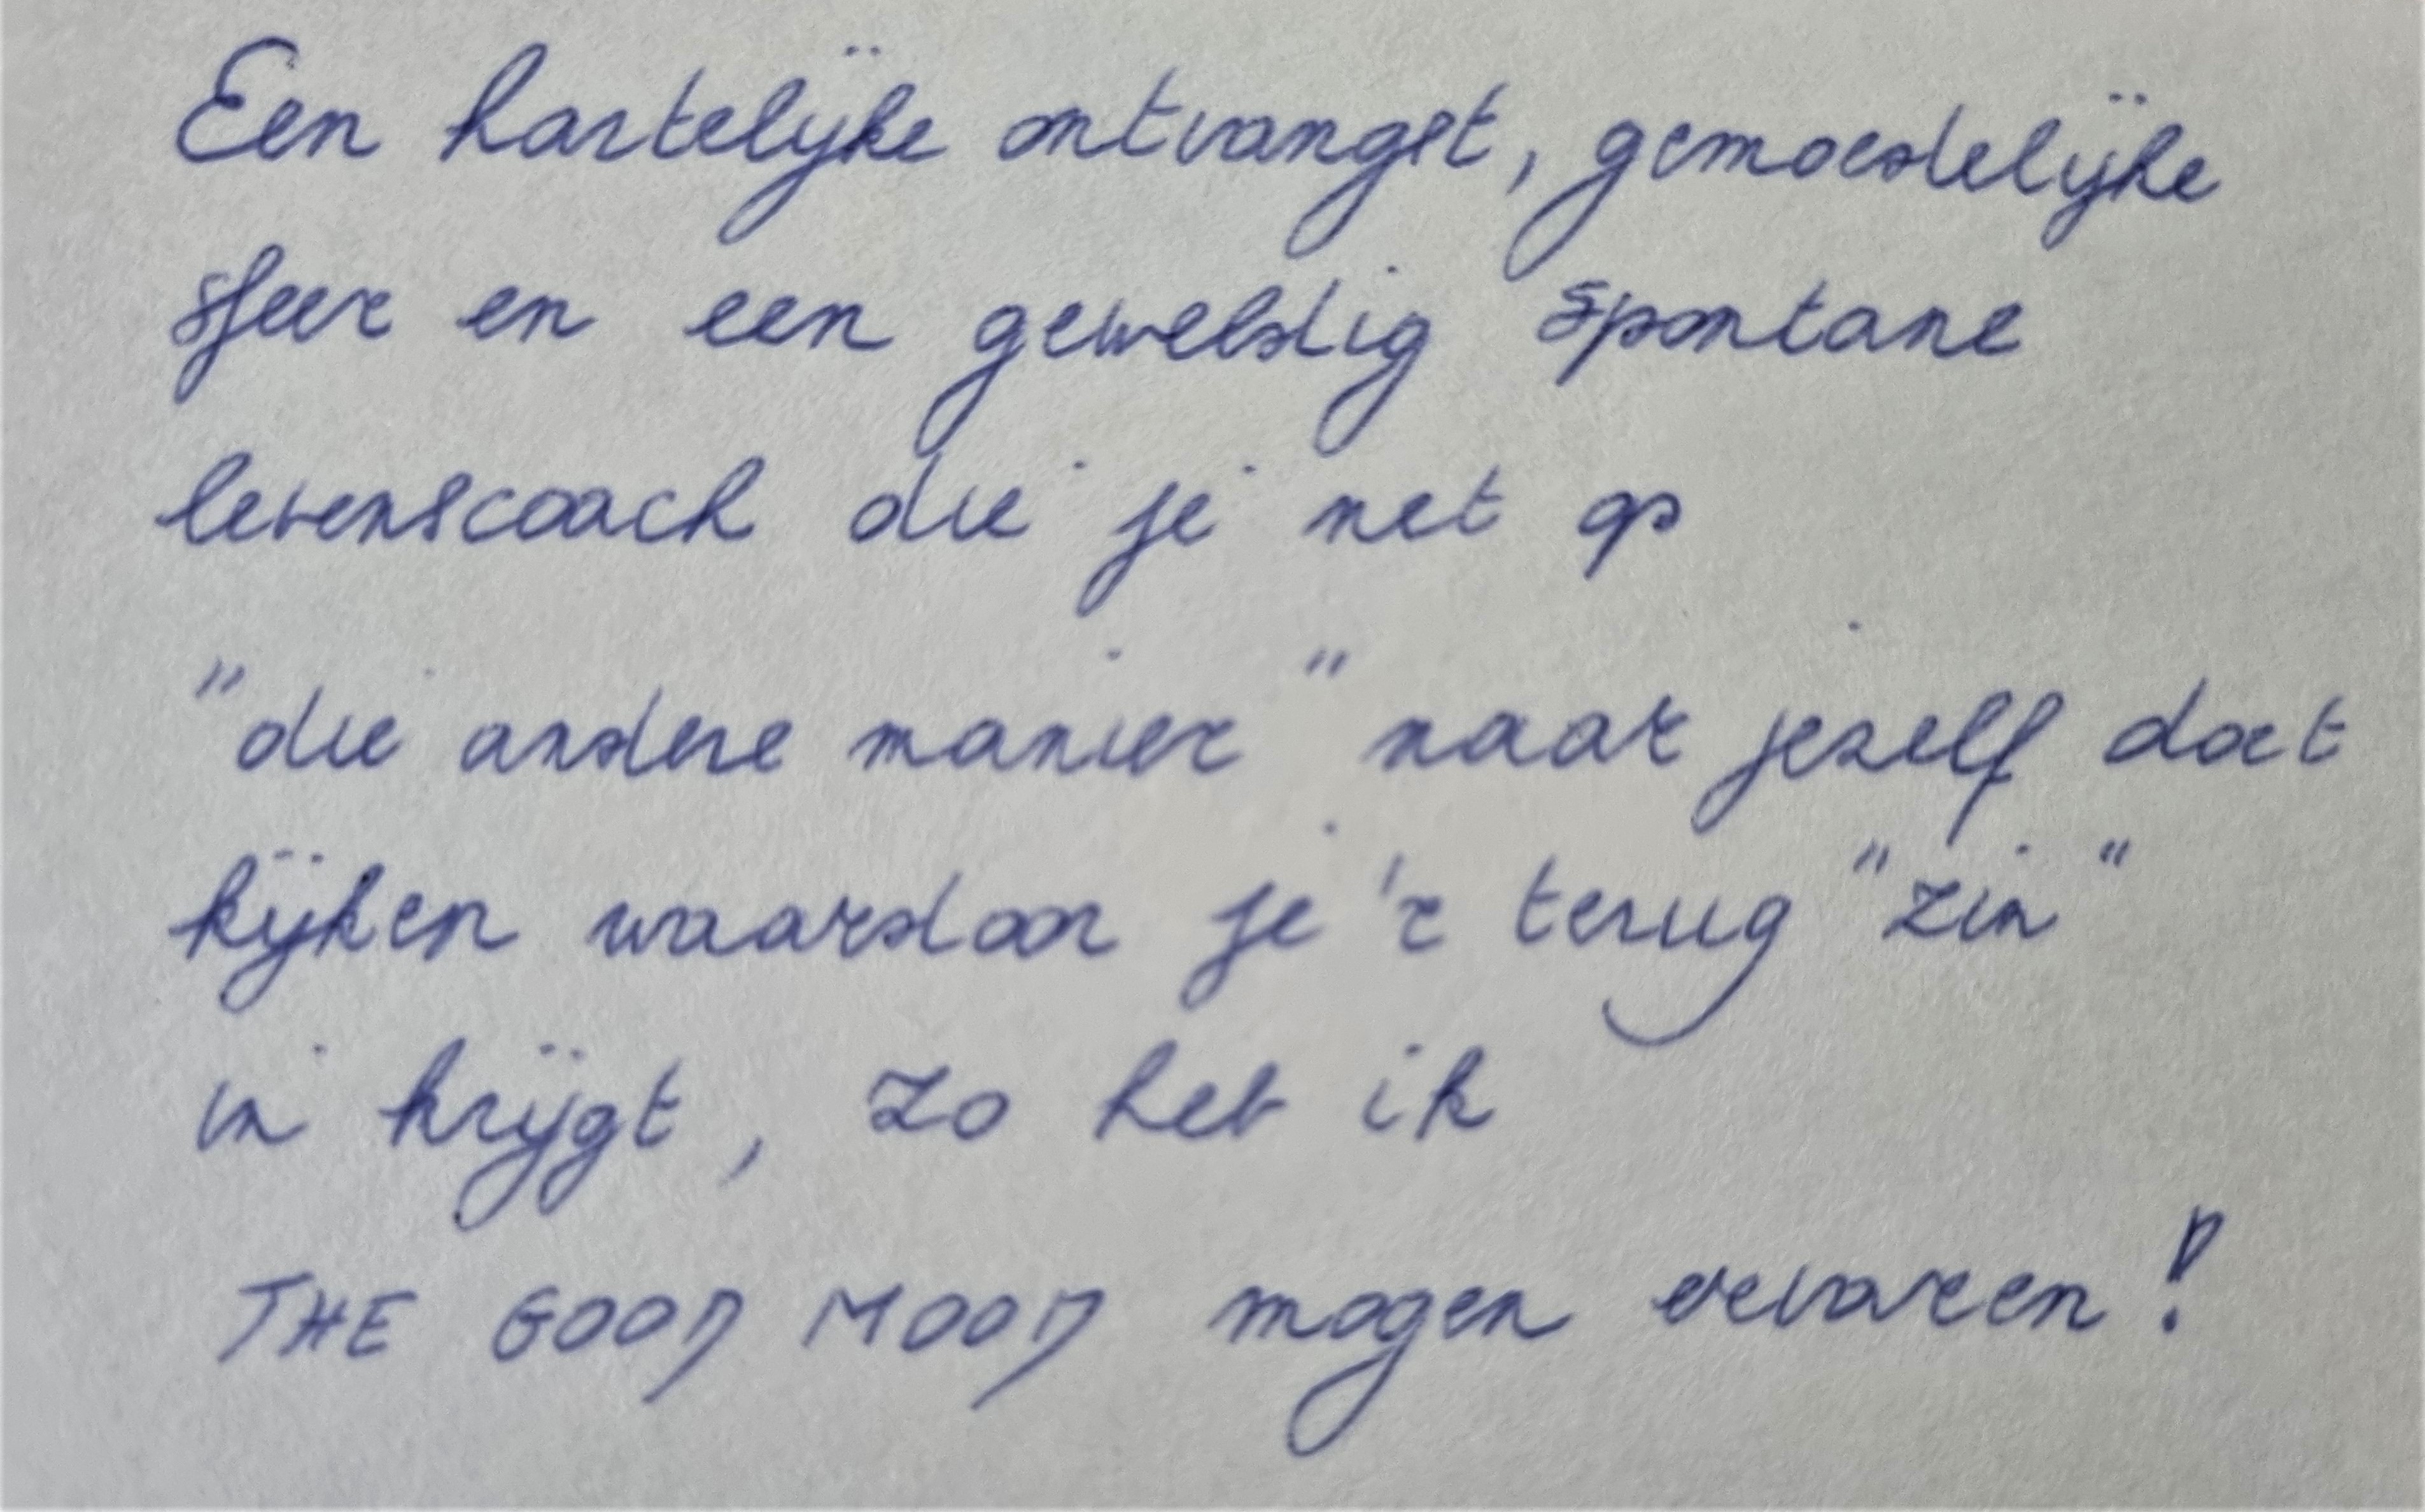 Een hartelijke ontvangst, gemoedelijke
sfeer en een geweldig spontane
levenscoach die je net op
"die andere manier" naar jezelf doet
kijken waardoor je 'r terug "zin"
in krijgt, zo heb ik
THE GOOD MOOD mogen ervaren!